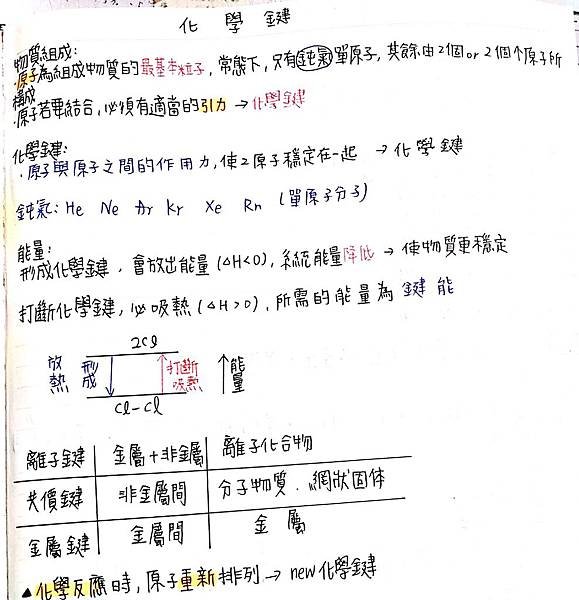 化學鍵
物質組成:
·原子為組成物質的最基本粒子,常態下,只有鈍氣單原子,其餘由2個or2個↑原子所
構成
·原子若要結合,必須有適當的引力→化學鍵
化學鍵:
·原子與原子之間的作用力,使2原子穩定在一起 →化學鍵
鈍氣: He Ne Ar Kr Xe Rn (單原子分子)
能量:
形成化學鍵,會放出能量(△H<0),系統能量降低→使物質更穩定
打斷化學鍵,必吸熱(△H>0),所需的能量為鍵能
2Cl
放熱 形成 打斷吸熱 ↑能量
Cl-Cl
離子鍵 金屬+非金屬 離子化合物
共價鍵 非金屬間 分子物質、網狀固体
金屬鍵 金屬間 金屬
▲化學反應時,原子重新排列→new化學鍵